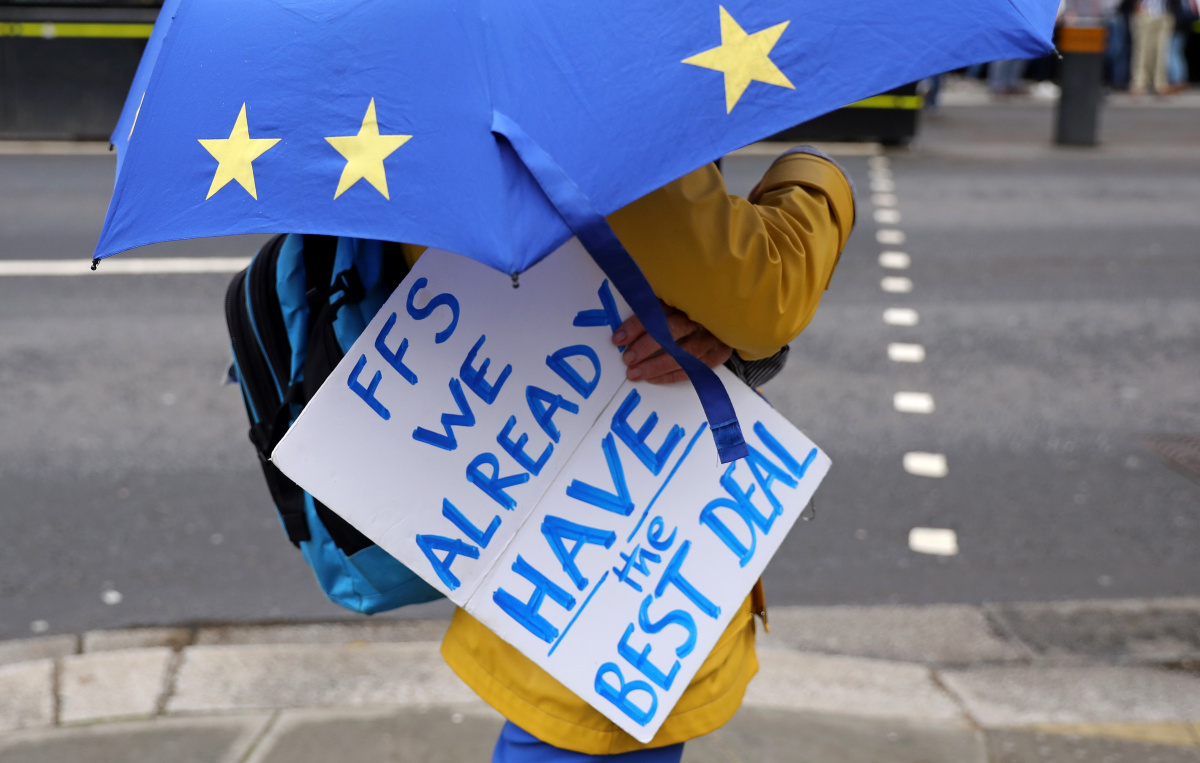 FFS
WE
ALREADY
HAVE
the
BEST DEAL